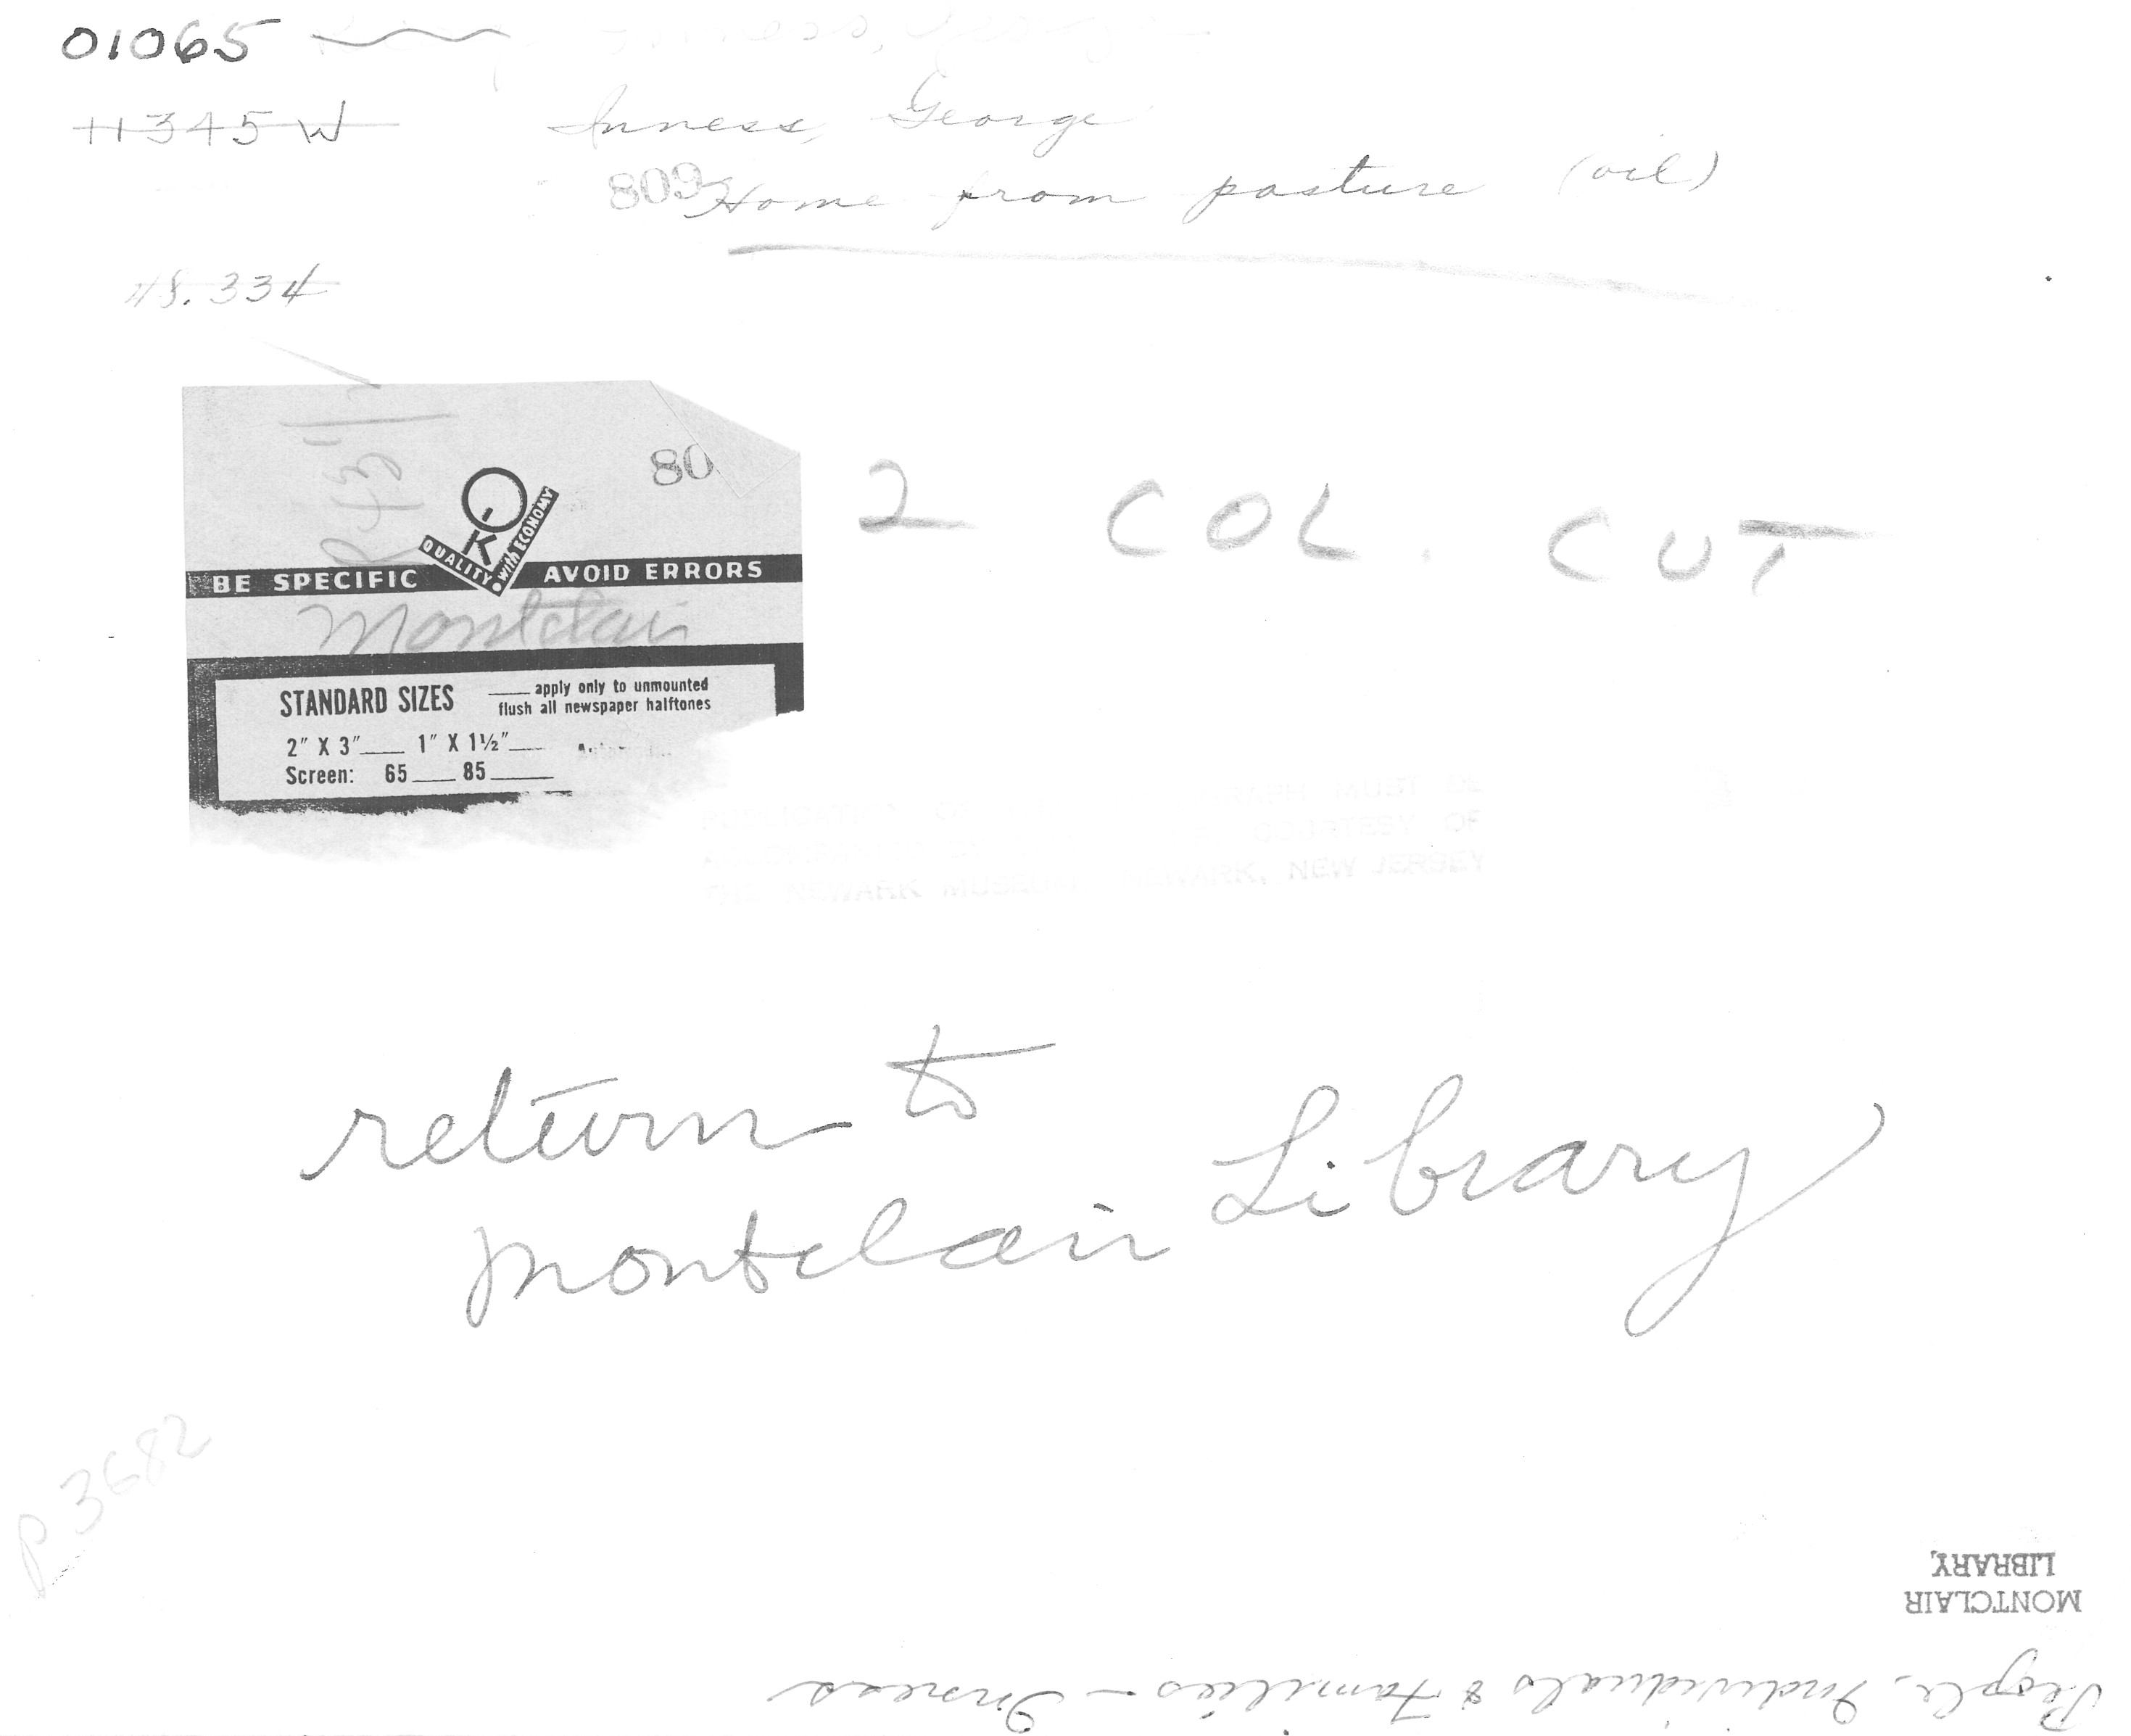 01065
H345W
Inness, George
809 Home from pasture (oil)
48.334
80
OK
QUALITY with ECONOMY
BE SPECIFIC AVOID ERRORS
Montclair
STANDARD SIZES apply only to unmounted
flush all newspaper halftones
2" X 3" 1" X 1½"
Screen: 65 85
2 COL. CUT
MUST BE
COURTESY OF
NEWARK MUSEUM NEWARK, NEW JERSEY
return to
Montclair Library
P3682
MONTCLAIR
LIBRARY
People, Individuals & Families - Inness